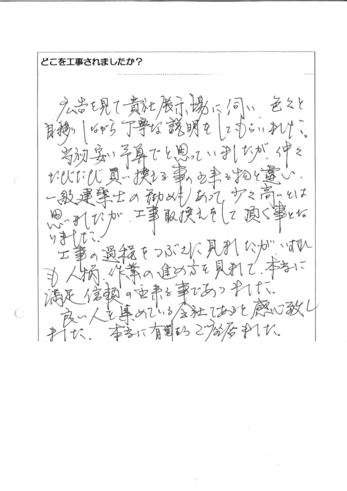 どこを工事されましたか?
広告を見て貴社展示場に伺い 色々と
しながら丁寧な説明をしてもらいました。
当初安い予算でと思っていましたが、仲々
たびたび買い換える事の出来る物と違い、
一級建築士の勧めもあって少々高いとは
思いましたが、工事取換えをして頂く事とな
りました。
工事の過程をつぶさに見ましたがいずれ
も人柄、作業の進め方を見まして、本当に
満足信頼の出来る事であつました。
良い人を集めている会社であると感心致し
ました。 本当に有難うございました。